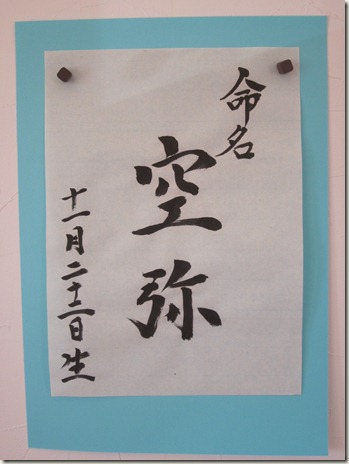 命名
空弥
十一月二十二日生